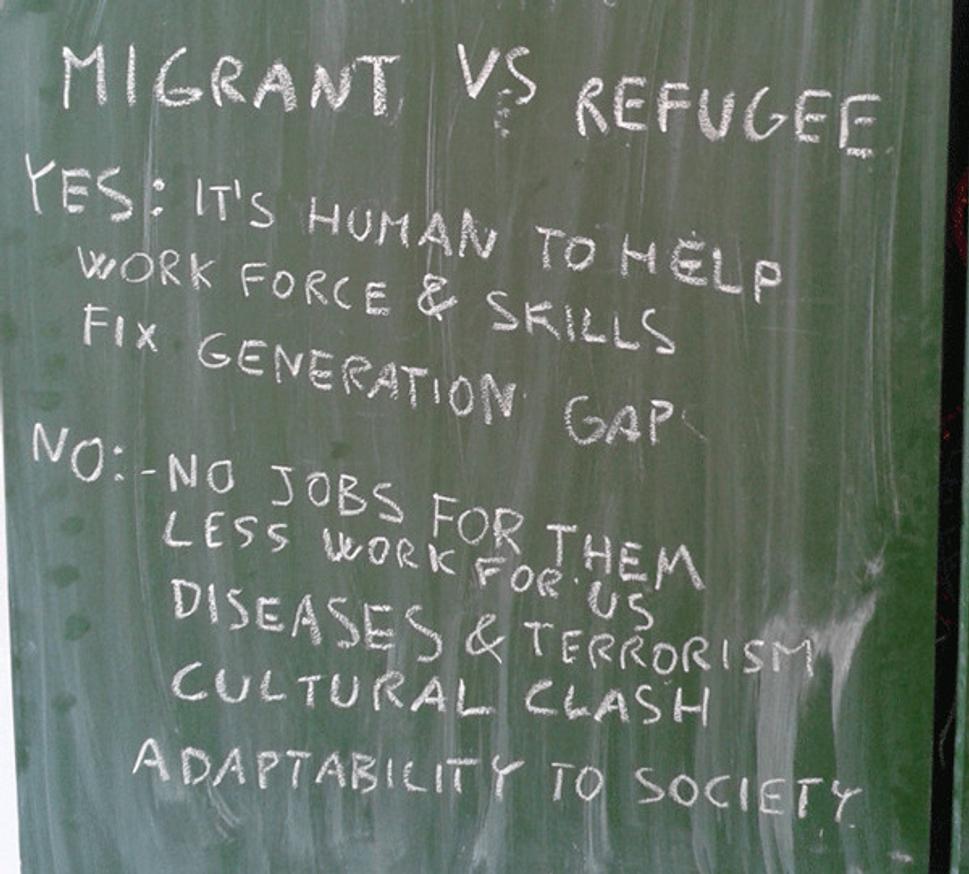 MIGRANT VS REFUGEE
YES: IT'S HUMAN TO HELP
WORK FORCE & SKILLS
FIX GENERATION GAP
NO: -NO JOBS FOR THEM
LESS WORK FOR US
DISEASES & TERRORISM
CULTURAL CLASH
ADAPTABILITY TO SOCIETY